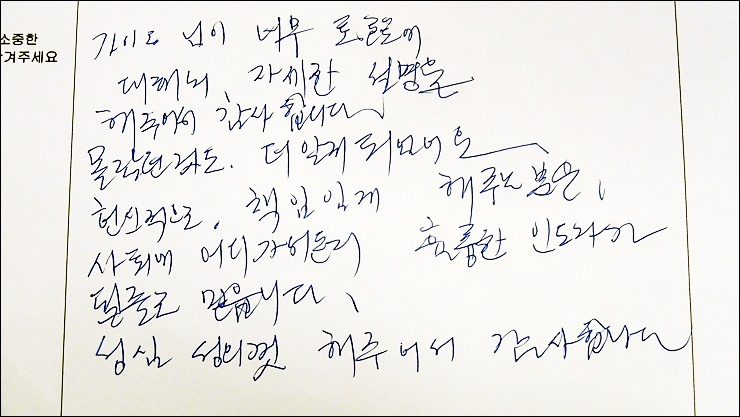 소중한
겨주세요
가이드 님이 너무
대해서 자세한 설명을
해주어서 감사 합니다
몰랐던것도. 더 알게 되었네요
헌신적으로. 책임있게 해주는 분은,
사회에 어디가던지 훌륭한 인도자가
될줄로 믿습니다
성심 성의껏 해주어서 감사합니다